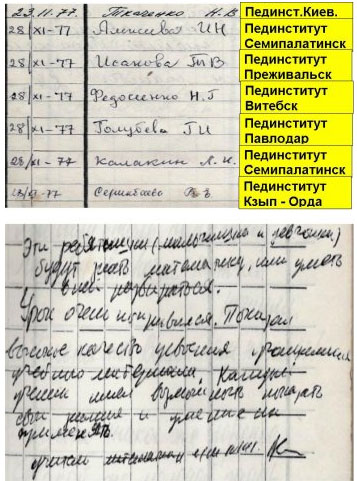 23.11.77. Ткаченко Н В Пединст.Киев.
28/XI-77 ИН Пединститут Семипалатинск
28/XI-77 Исакова ТВ Пединститут Преживальск
28/XI-77 Федосенко Н.Г Пединститут Витебск
28/XI-77 Голубева ГИ Пединститут Павлодар
28/XI-77 Калакин Л.И. Пединститут Семипалатинск
XI-77 Пединститут Кзып - Орда
Эти ребятишки (мальчишки и девчонки)
будут знать математику, или уметь
в ней разбираться.
Урок очень понравился. Показал
высокое качество усвоения
учебного материала. Каждый
ученик имел возможность показать
свои знания и умения их
применять.
учитель